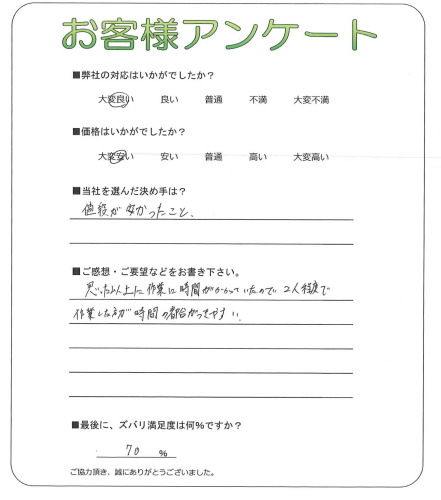 お客様アンケート
■弊社の対応はいかがでしたか？
大変良い 良い 普通 不満 大変不満
■価格はいかがでしたか？
大変安い 安い 普通 高い 大変高い
■当社を選んだ決め手は？
値段が安かったこと、
■ご感想・ご要望などをお書き下さい。
思った以上に作業に時間がかかっていたので 2人程度で
作業した方が時間の都合がつきやすい。
■最後に、ズバリ満足度は何%ですか？
70 %
ご協力頂き、誠にありがとうございました。